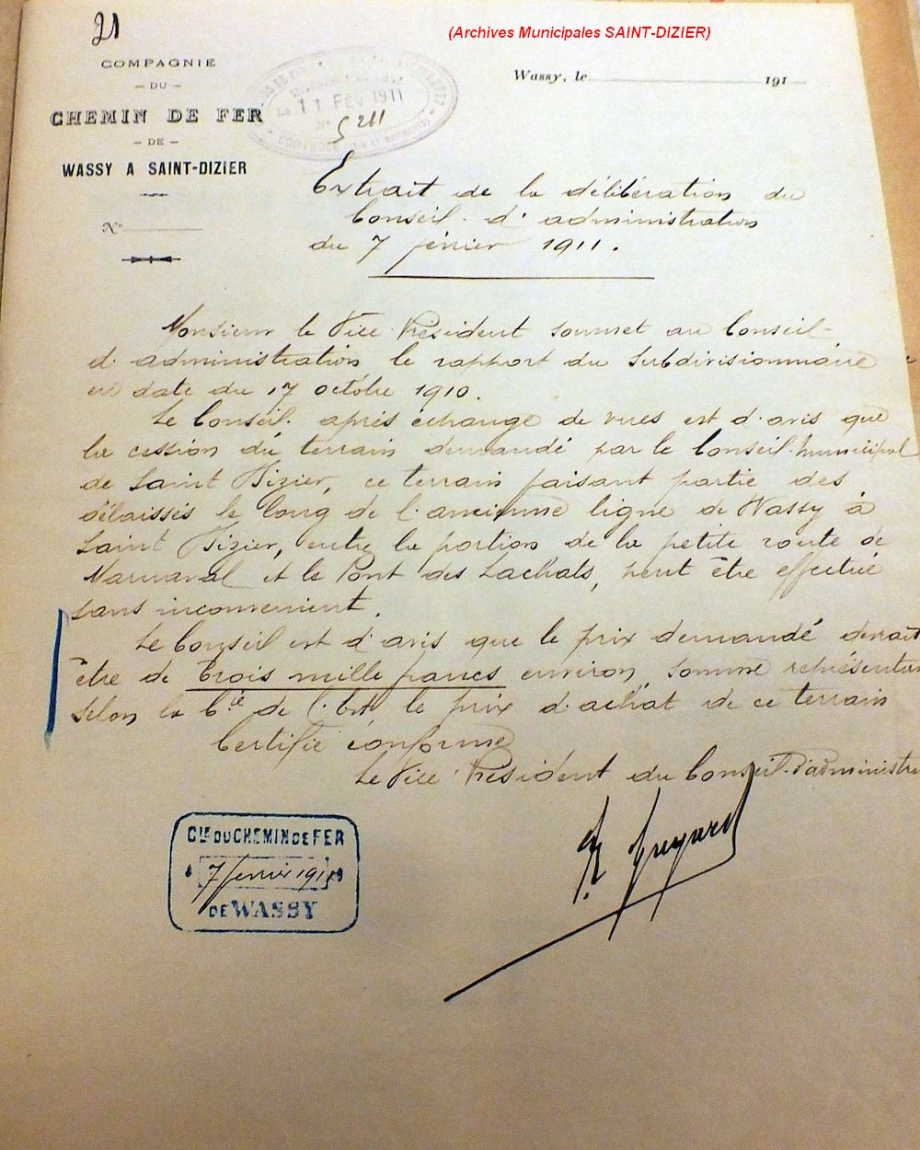 21
(Archives Municipales SAINT-DIZIER)
COMPAGNIE
— DU —
CHEMIN DE FER
— DE —
WASSY A SAINT-DIZIER
N°
11 FEV 1911
5211
CONTROLE
Wassy, le 191
Extrait de la délibération du
Conseil d'administration
du 7 février 1911.
Monsieur le Vice Président soumet au Conseil
d'administration le rapport du Subdivisionnaire
en date du 17 octobre 1910.
Le Conseil après échange de vues est d'avis que
la cession du terrain demandé par le Conseil municipal
de Saint Dizier, ce terrain faisant partie des
délaissés le long de l'ancienne ligne de Wassy à
Saint Dizier, entre la portion de la petite route de
Marnaval et le Pont des Lachats, peut être effectué
sans inconvenient.
Le Conseil est d'avis que le prix demandé devrait
être de trois mille francs environ, somme représentan
selon la Cie de l'Est, le prix d'achat de ce terrain
Certifié conforme
Le Vice Président du Conseil d'administr
CIE DU CHEMIN DE FER
7 février 1911
DE WASSY